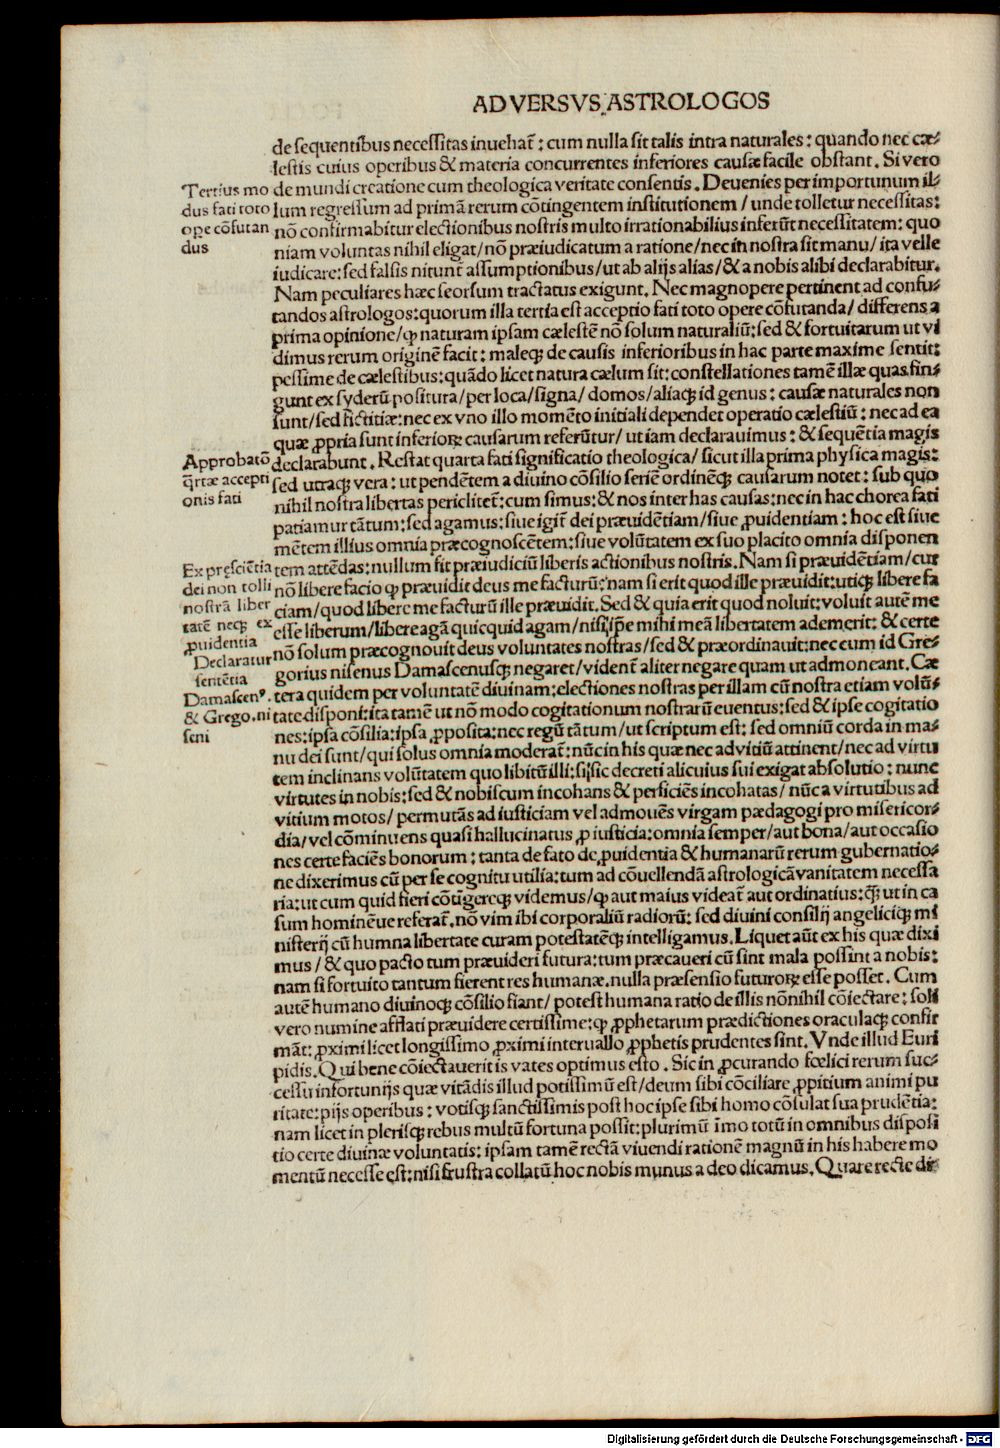 ADVERSVS ASTROLOGOS
de sequentibus necessitas inuehat᷑ : cum nulla sit talis intra naturales : quando nec cæ⸗
lestis cuius operibus & materia concurrentes inferiores causæ facile obstant. Si vero
de mundi creatione cum theologica veritate consentis. Deuenies per importunum il⸗
lum regressum ad primā rerum cōtingentem institutionem / unde tolletur necessitas:
nō confirmabitur electionibus nostris multo irrationabilius inferūt necessitatem: quo
niam voluntas nihil eligat / nō præiudicatum a ratione / nec in nostra sit manu / ita velle
iudicare: sed falsis nitunt᷑ assumptionibus / ut ab alijs alias / & a nobis alibi declarabitur.
Nam peculiares hæc seorsum tractatus exigunt. Nec magnopere pertinent ad confu⸗
tandos astrologos: quorum illa tertia est acceptio fati toto opere cōfutanda / differens a
prima opinione / ꝙ naturam ipsam cælestē nō solum naturaliū: sed & fortuitarum ut vi
dimus rerum originē facit: maleqꝫ de causis inferioribus in hac parte maxime sentit:
pessime de cælestibus: quādo licet natura cælum sit: constellationes tamē illæ quas fin⸗
gunt ex syderū positura / per loca / signa / domos / aliaqꝫ id genus: causæ naturales non
sunt / sed fictitiæ: nec ex vno illo momēto initiali dependet operatio cælestiū: nec ad ea
quæ ꝓpria sunt inferioꝝ causarum referūtur / ut iam declarauimus: & sequētia magis
declarabunt. Restat quarta fati significatio theologica / sicut illa prima physica magis:
sed utraqꝫ vera: ut pendētem a diuino cōsilio seriē ordinēqꝫ causarum notet: sub quo
nihil nostra libertas periclitet᷑: cum simus: & nos inter has causas: nec in hac chorea fati
patiamur tātum: sed agamus: siue igit᷑ dei præuidētiam / siue ꝓuidentiam: hoc est siue
mētem illius omnia præcognoscētem: siue volūtatem ex suo placito omnia disponen
tem attēdas: nullum fit præiudiciū liberis actionibus nostris. Nam si præuidētiam / cur
nō libere facio ꝙ præuidit deus me facturū: nam si erit quod ille præuidit: utiqꝫ libere fa
ciam / quod libere me facturū ille præuidit. Sed & quia erit quod noluit: voluit autē me
esse liberum / libere agā quicquid agam / nisi ip̄e mihi meā libertatem ademerit: & certe
nō solum præcognouit deus voluntates nostras / sed & præordinauit: nec eum id Gre⸗
gorius nisenus Damascenusqꝫ negaret / vident᷑ aliter negare quam ut admoneant. Cæ
tera quidem per voluntatē diuinam: electiones nostras per illam cū nostra etiam volū⸗
tate disponi: ita tamē ut nō modo cogitationum nostrarū euentus: sed & ipse cogitatio
nes: ipsa cōsilia: ipsa ꝓposita: nec regū tātum / ut scriptum est: sed omniū corda in ma⸗
nu dei sunt / qui solus omnia moderat᷑: nūc in his quæ nec ad vitiū attinent / nec ad virtu
tem inclinans volūtatem quo libitū illi: si sic decreti alicuius sui exigat absolutio: nunc
virtutes in nobis: sed & nobiscum incohans & perficiēs incohatas / nūc a virtutibus ad
vitium motos / permutās ad iusticiam vel admouēs virgam pædagogi pro misericor⸗
dia / vel cōminuens quasi hallucinatus ꝓ iusticia: omnia semper / aut bona / aut occasio
nes certe faciēs bonorum: tanta de fato de ꝓuidentia & humanarū rerum gubernatio⸗
ne dixerimus cū per se cognitu utilia: tum ad cōuellendā astrologicā vanitatem necessa
ria: ut cum quid fieri cōtigereqꝫ videmus / ꝙ aut maius videat᷑ aut ordinatius: ꝙ̄ ut in ca
sum hominēue referat᷑. nō vim ibi corporaliū radiorū: sed diuini consilij angeliciqꝫ mi
nisterij cū humna libertate curam potestatēqꝫ intelligamus. Liquet aūt ex his quæ dixi
mus / & quo pacto tum præuideri futura: tum præcaueri cū sint mala possint a nobis:
nam si fortuito tantum fierent res humanæ. nulla præsensio futuroꝝ esse posset. Cum
autē humano diuinoqꝫ cōsilio fiant / potest humana ratio de illis nōnihil cōiectare: soli
vero numine afflati præuidere certissime: ꝙ ꝓphetarum prædictiones oraculaqꝫ confir
māt: ꝓximi licet longissimo ꝓximi interuallo ꝓphetis prudentes sint. Vnde illud Euri
pidis. Qui bene cōiectauerit is vates optimus esto. Sic in ꝓcurando fœlici rerum suc⸗
cessu infortunijs quæ vitādis illud potissimū est / deum sibi cōciliare ꝓpitium animi pu
ritate: pijs operibus: votisqꝫ sanctissimis post hoc ipse sibi homo cōsulat sua prudētia:
nam licet in plerisqꝫ rebus multū fortuna possit: plurimū īmo totū in omnibus disposi
tio certe diuinæ voluntatis: ipsam tamē rectā viuendi rationē magnū in his habere mo
mentū necesse est: nisi frustra collatū hoc nobis munus a deo dicamus. Quare recte di⸗
Tertius mo
dus fati toto
ope cōfutan
dus
Approbatō
q̄rtæ accepti
onis fati
Ex pręsciētia
dei non tolli
nostrā liber
tatē neqꝫ ex
ꝓuidentia
Declaratur
sentētia
Damascenꝰ.
& Grego. ni
seni
Digitalisierung gefördert durch die Deutsche Forschungsgemeinschaft - DFG